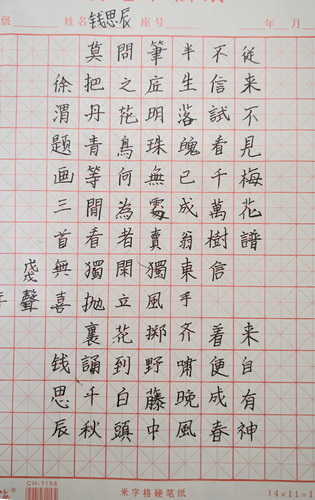 级 姓名 钱思辰 座号 年 月
従来不見梅花譜信手来自有神
不信試看千萬樹東風着便成春
半生落魄已成翁獨立齐嘯晚風
筆底明珠無霧賣閑抛掷野藤中
問之花鳥何為者獨喜花到白頭
莫把丹青等間看無聲裏誦千秋
徐渭题画三首戊戌年
钱思辰
CH-1156 米字格硬笔纸 14×11=1